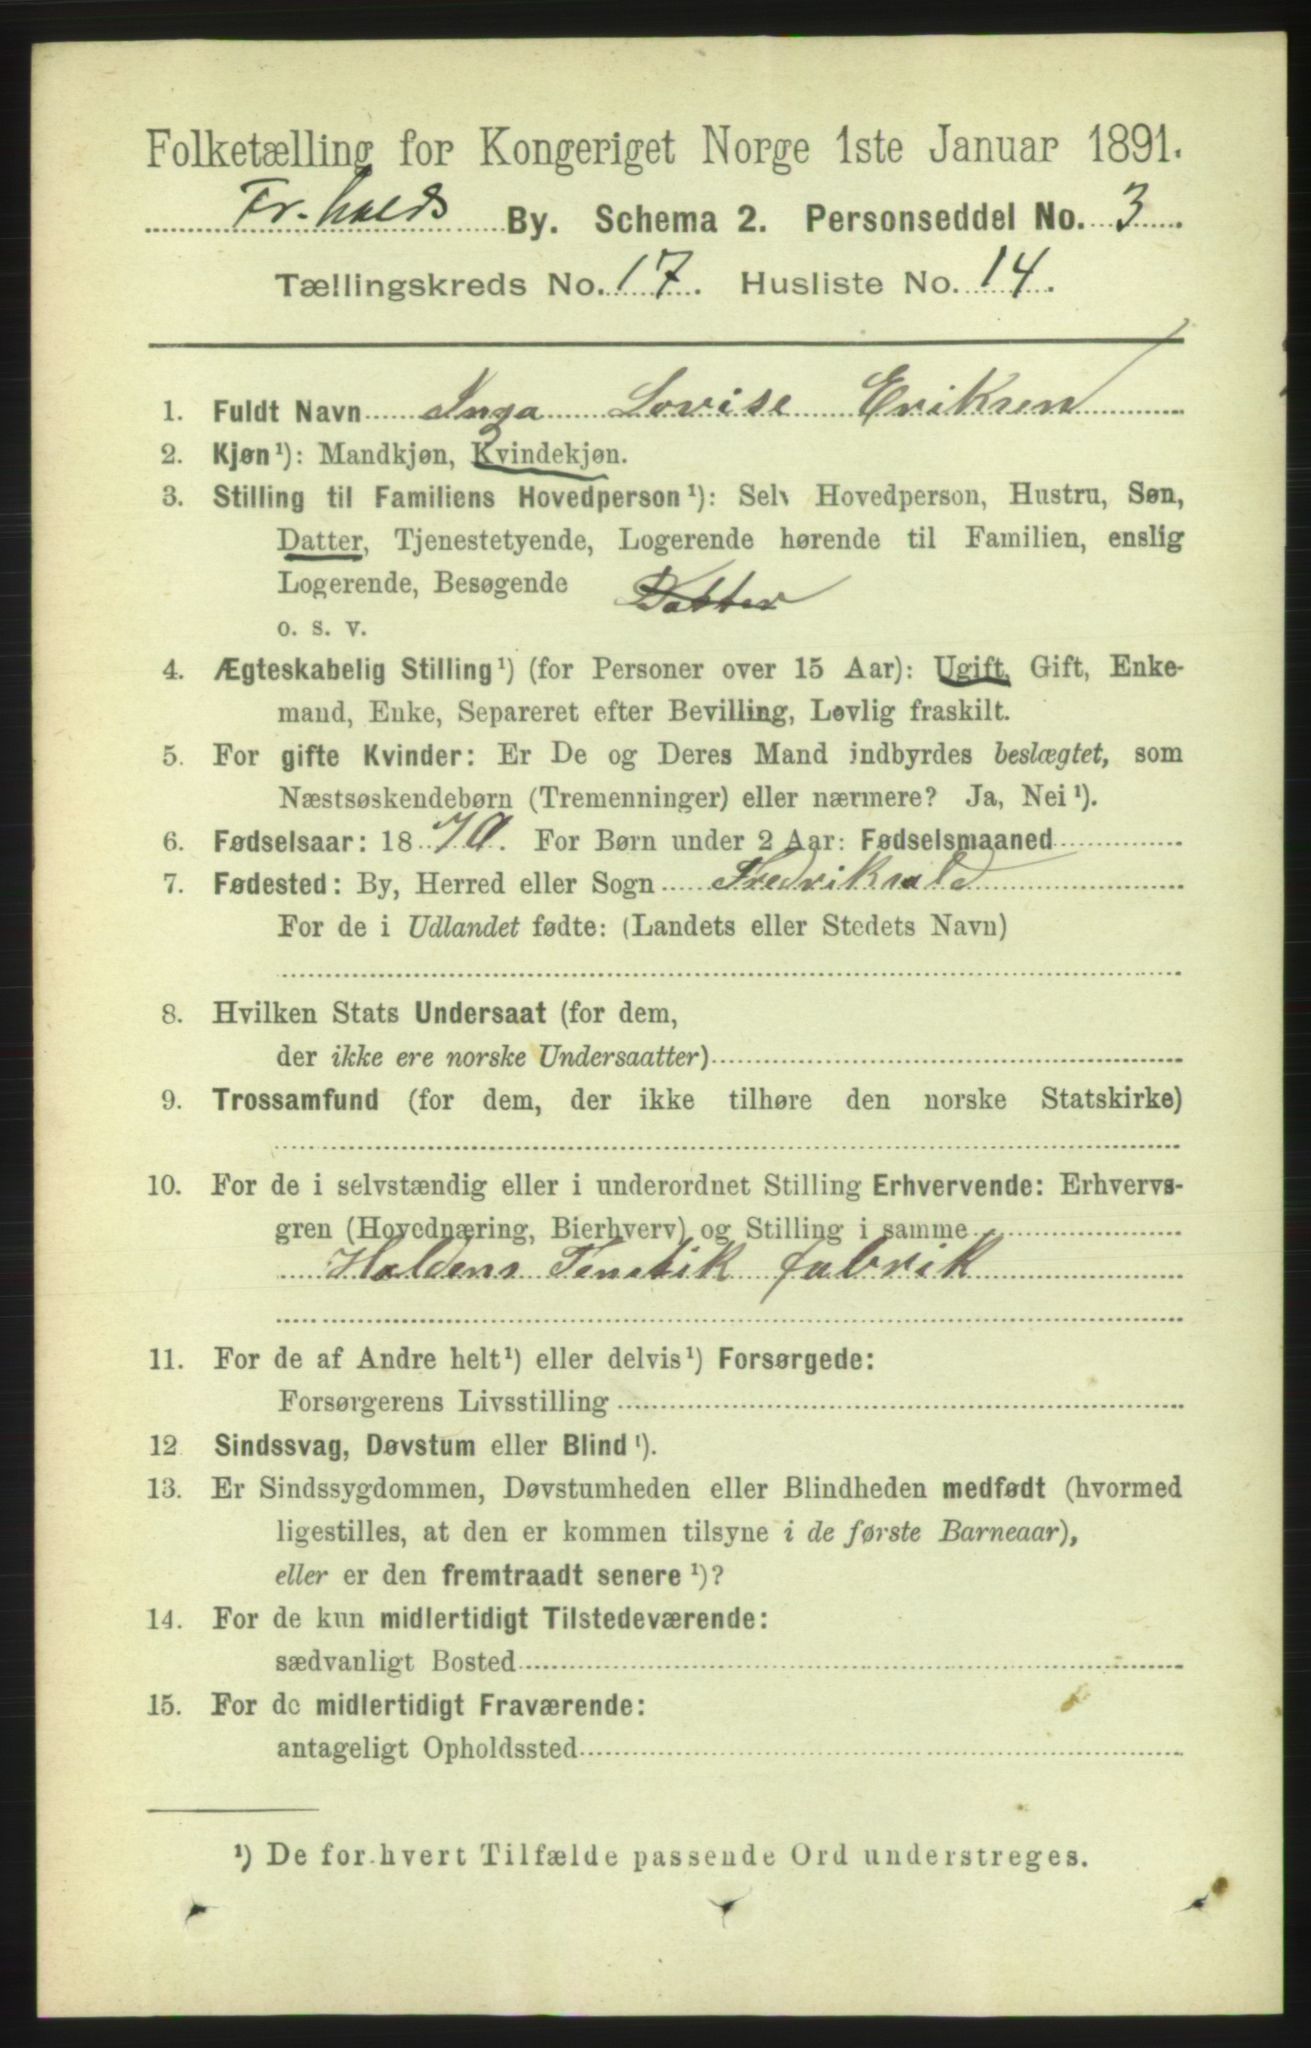 Folketælling for Kongeriget Norge 1ste Januar 1891.
Fr.halds By. Schema 2. Personseddel No. 3
Tællingskreds No. 17. Husliste No. 14.
1. Fuldt Navn Inga Lovise Eriksen
2. Kjøn¹): Mandkjøn, Kvindekjøn.
3. Stilling til Familiens Hovedperson¹): Selv Hovedperson, Hustru, Søn,
Datter, Tjenestetyende, Logerende hørende til Familien, enslig
Logerende, Besøgende Datter
o. s. v.
4. Ægteskabelig Stilling¹) (for Personer over 15 Aar): Ugift, Gift, Enke-
mand, Enke, Separeret efter Bevilling, Løvlig fraskilt.
5. For gifte Kvinder: Er De og Deres Mand indbyrdes beslægtet, som
Næstsøskendebørn (Tremenninger) eller nærmere? Ja, Nei¹).
6. Fødselsaar: 1870. For Børn under 2 Aar: Fødselsmaaned
7. Fødested: By, Herred eller Sogn Fredriksald
For de i Udlandet fødte: (Landets eller Stedets Navn)
8. Hvilken Stats Undersaat (for dem,
der ikke ere norske Undersaatter)
9. Trossamfund (for dem, der ikke tilhøre den norske Statskirke)
10. For de i selvstændig eller i underordnet Stilling Erhvervende: Erhvervs-
gren (Hovednæring, Bierhverv) og Stilling i samme
Haldens fabrik
11. For de af Andre helt¹) eller delvis¹) Forsørgede:
Forsørgerens Livsstilling
12 Sindssvag, Døvstum eller Blind¹).
13. Er Sindssygdommen, Døvstumheden eller Blindheden medfødt (hvormed
ligestilles, at den er kommen tilsyne i de første Barneaar),
eller er den fremtraadt senere¹)?
14. For de kun midlertidigt Tilstedeværende:
sædvanligt Bosted
15. For de midlertidigt Fraværende:
antageligt Opholdssted
¹) De for hvert Tilfælde passende Ord understreges.